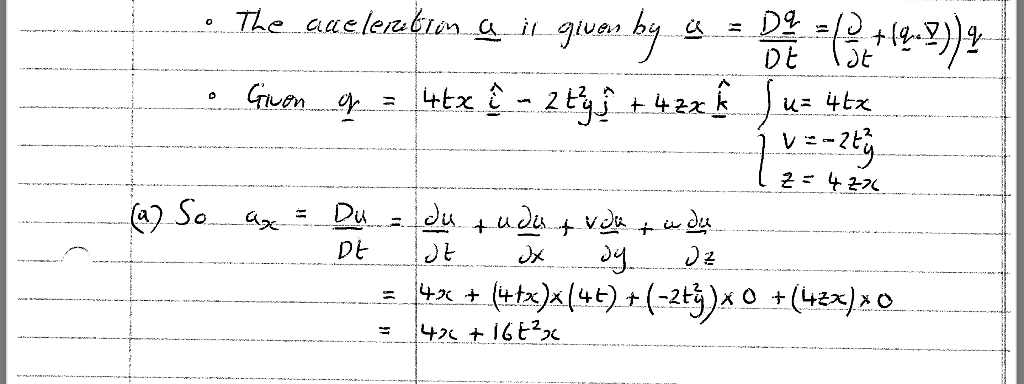 • The acceleration a is given by a = Dq/Dt = (∂/∂t + (q·∇))q
• Given q = 4tx î - 2t²y ĵ + 4zx k̂ { u = 4tx
v = -2t²y
z = 4zx
(a) So aₓ = Du/Dt = ∂u/∂t + u ∂u/∂x + v ∂u/∂y + w ∂u/∂z
= 4x + (4tx)×(4t) + (-2t²y)×0 + (4zx)×0
= 4x + 16t²x